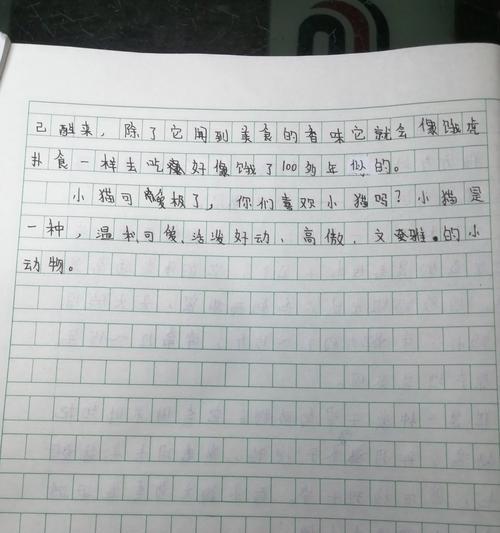 己醒来，除了它闻到美食的香味它就会像饿虎
扑食一样去吃好像饿了100多年似的。
小猫可爱极了，你们喜欢小猫吗？小猫是
一种，温柔可爱、活泼好动、高傲、文雅.的小
动物。